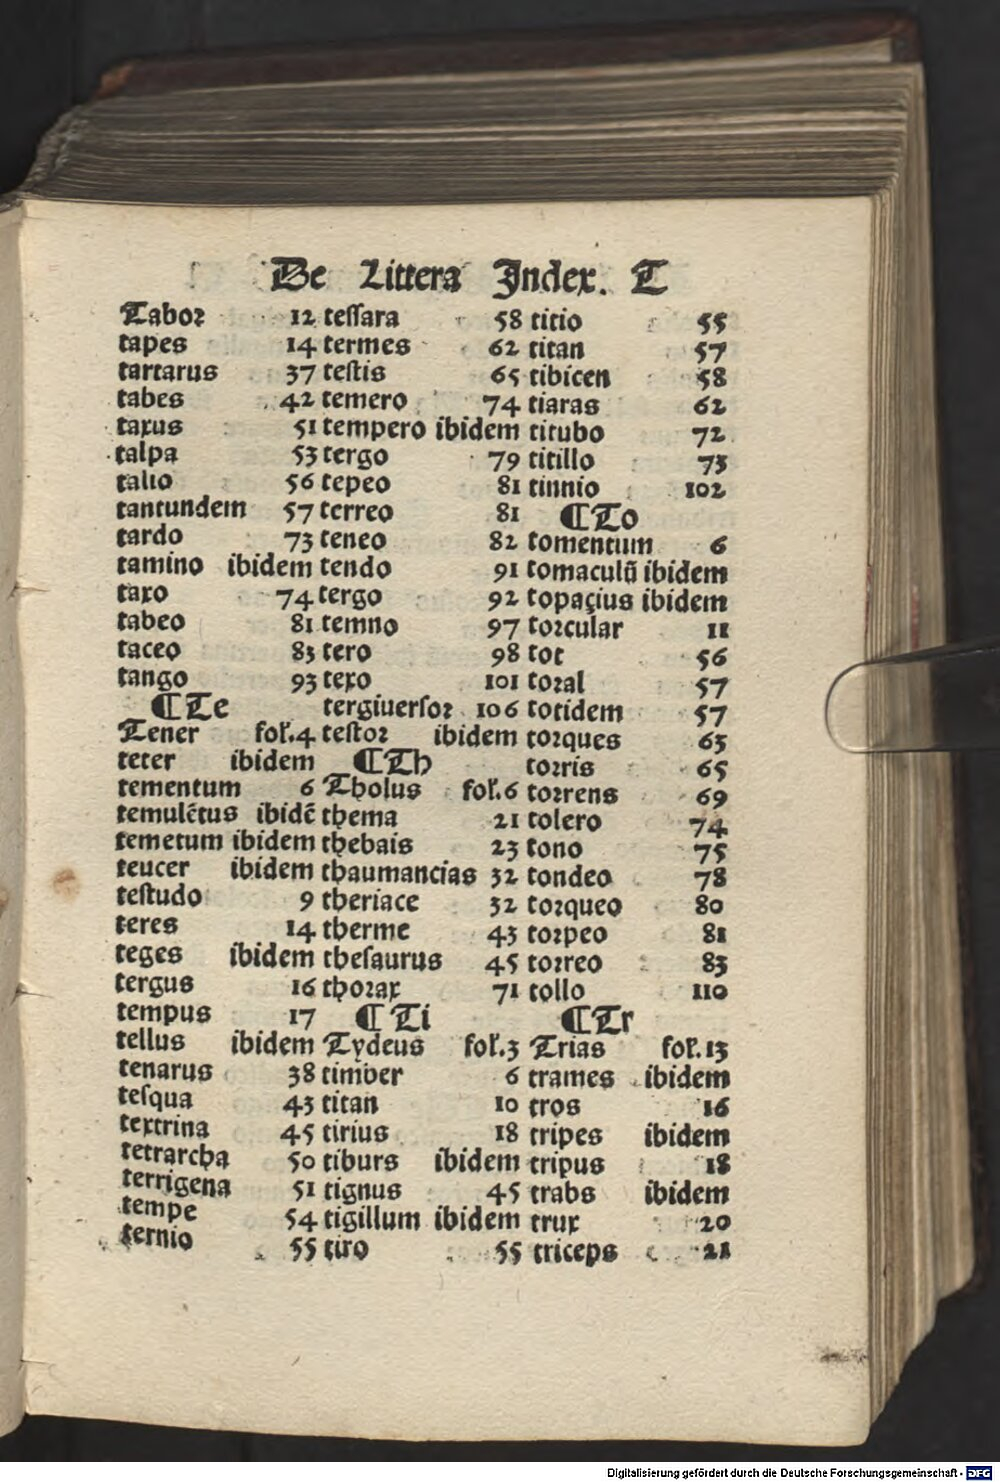 De Littera Index. T
Tabor 12
tapes 14
tartarus 37
tabes 42
taxus 51
talpa 53
talio 56
tantundem 57
tardo 73
tamino ibidem
taxo 74
tabeo 81
taceo 83
tango 93
¶Te
Tener fol.4
teter ibidem
tementum 6
temulētus ibidē
temetum ibidem
teucer ibidem
testudo 9
teres 14
teges ibidem
tergus 16
tempus 17
tellus ibidem
tenarus 38
tesqua 43
textrina 45
tetrarcha 50
terrigena 51
tempe 54
ternio 55
tessara 58
termes 62
testis 65
temero 74
tempero ibidem
tergo 79
tepeo 81
terreo 81
teneo 82
tendo 91
tergo 92
temno 97
tero 98
texo 101
tergiuersor 106
testor ibidem
¶Th
Tholus fol.6
thema 21
thebais 23
thaumancias 32
theriace 32
therme 43
thesaurus 45
thorax 71
¶Ti
Tydeus fol.3
timber 6
titan 10
tirius 18
tiburs ibidem
tignus 45
tigillum ibidem
tiro 55
titio 55
titan 57
tibicen 58
tiaras 62
titubo 72
titillo 73
tinnio 102
¶To
tomentum 6
tomaculū ibidem
topaçius ibidem
torcular 11
tot 56
toral 57
totidem 57
torques 63
torris 65
torrens 69
tolero 74
tono 75
tondeo 78
torqueo 80
torpeo 81
torreo 83
tollo 110
¶Tr
Trias fol.13
trames ibidem
tros 16
tripes ibidem
tripus 18
trabs ibidem
trux 20
triceps 21
Digitalisierung gefördert durch die Deutsche Forschungsgemeinschaft - DFG